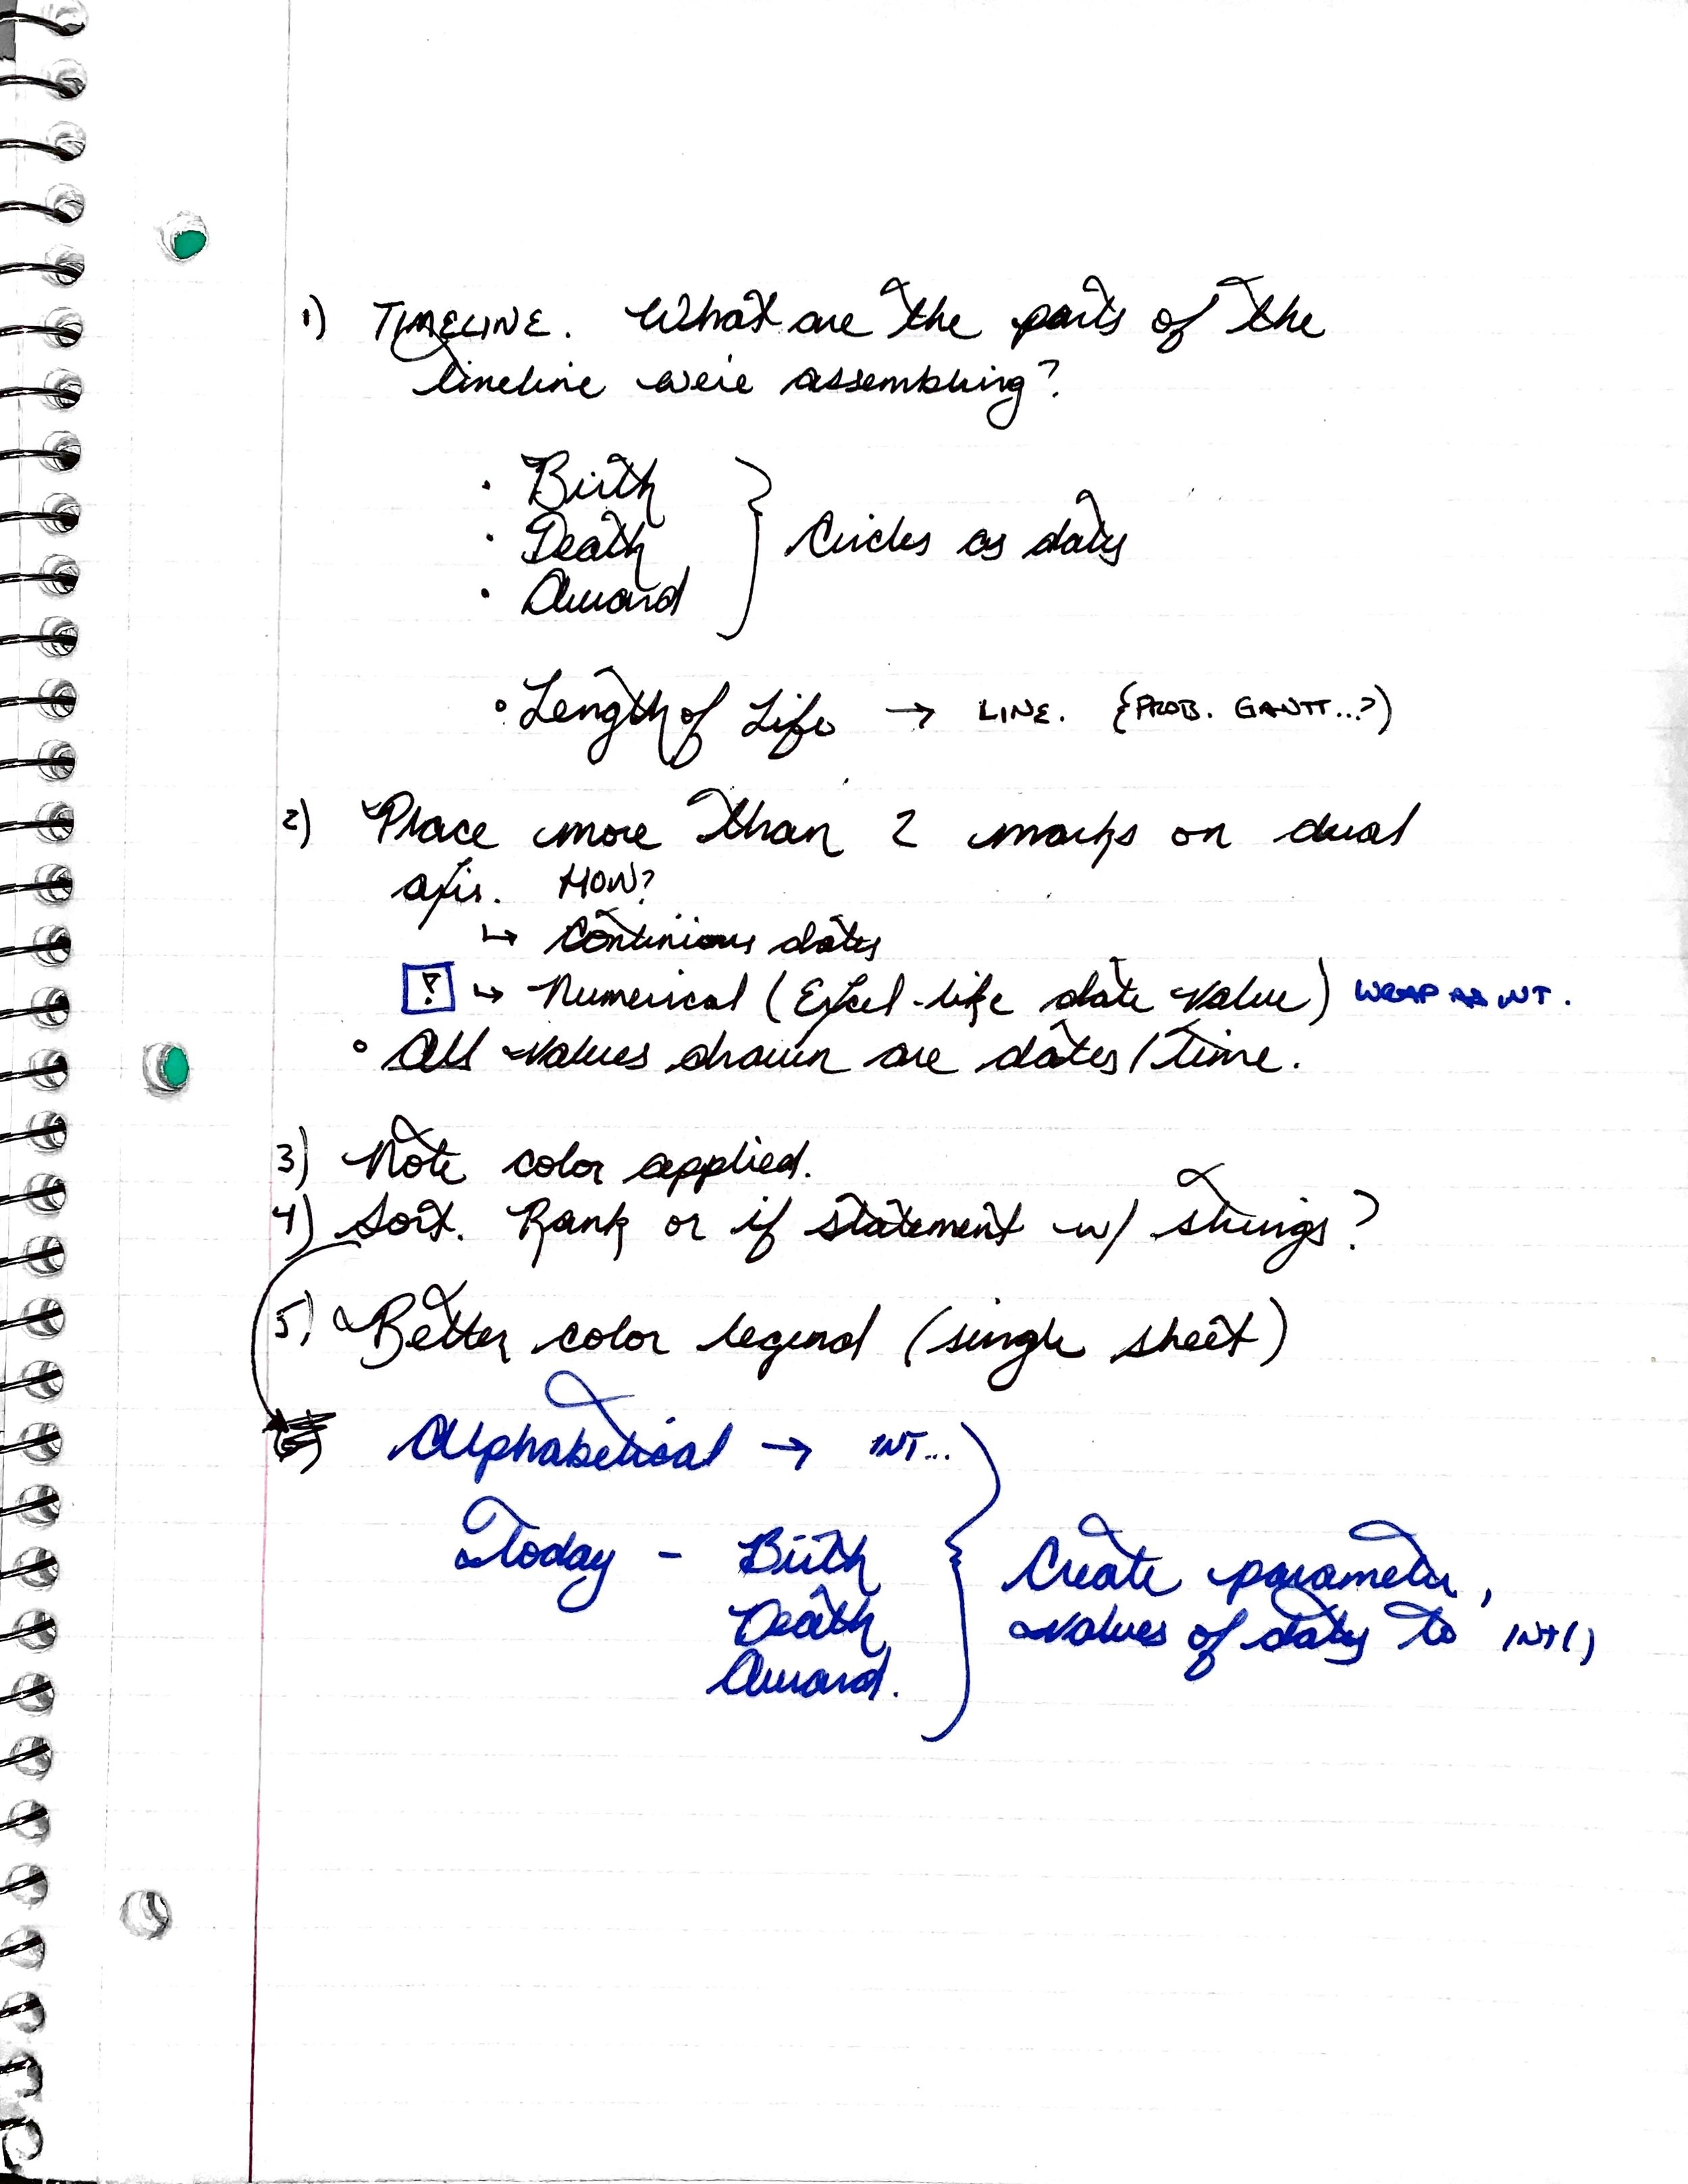 1) TIMELINE. What are the parts of the
timeline we're assembling?
• Birth
• Death
• Award
} Circles as dates
• Length of Life → LINE. {PROB. GANTT...?)
2) Place more than 2 marks on dual
axis. HOW?
↳ Continious dates
? ↳ Numerical (Excel-like date value) WRAP AS INT.
• All values drawn are dates/time.
3) Note color applied.
4) Sort. Rank or if statement w/ strings?
5) Better color legend (single sheet)
Alphabetical → INT...
Today - Birth
Death
Award.
} Create parameter,
values of dates to INT()